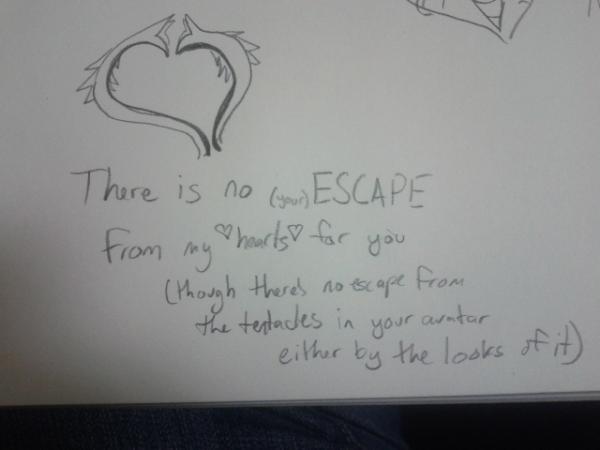 There is no (your) ESCAPE
from my ♡hearts♡ for you
(though there's no escape from
the tentacles in your avatar
either by the looks of it)